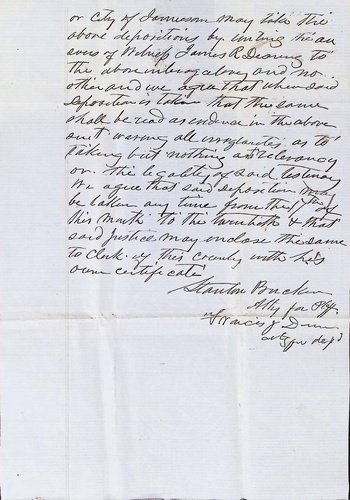 or City of Jameson may take the
above depositions by writing the an
swers of Witness James R Dearing to
the above interrogatory and no
other and we agree that when said
deposition is taken that the same
shall be read as evidence in the above
suit waving all irregularities as to
taking but nothing as to relevancy
or the legality of said testimony
We agree that said deposition may
be taken any time from the 17 day
this month to the twentieth & that
said Justice may enclose the same
to Clerk of this County with his
own certificate
Stanton
Atty for Plff
Francis
atty for deft